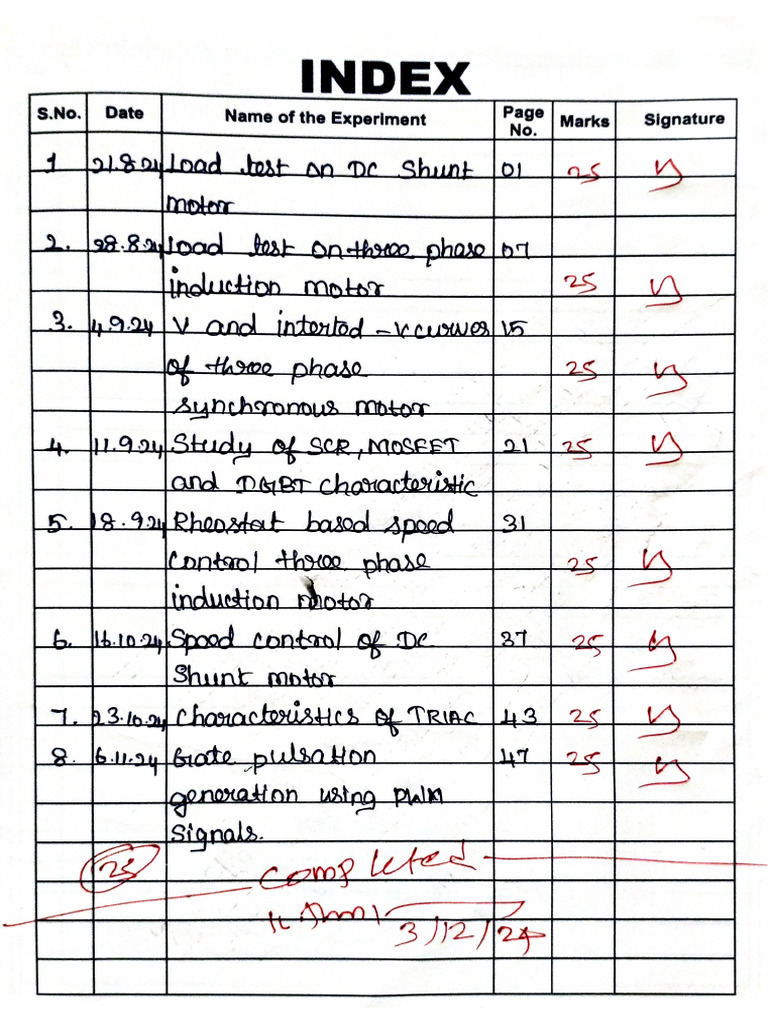 INDEX
S.No. Date Name of the Experiment Page No. Marks Signature
1 21.8.24 Load test on DC Shunt 01 25
motor
2. 28.8.24 Load test on three phase 07
induction motor 25
3. 4.9.24 V and interted -V curves 15
of three phase 25
synchronous motor
4. 11.9.24 Study of SCR, MOSFET 21 25
and IGBT characteristic
5. 18.9.24 Rheostat based speed 31
control three phase 25
induction motor
6. 16.10.24 Speed control of DC 37 25
Shunt motor
7. 23.10.24 characteristics of TRIAC 43 25
8. 6.11.24 Gate pulsation 47 25
generation using PWM
Signals.
25 completed
3/12/24